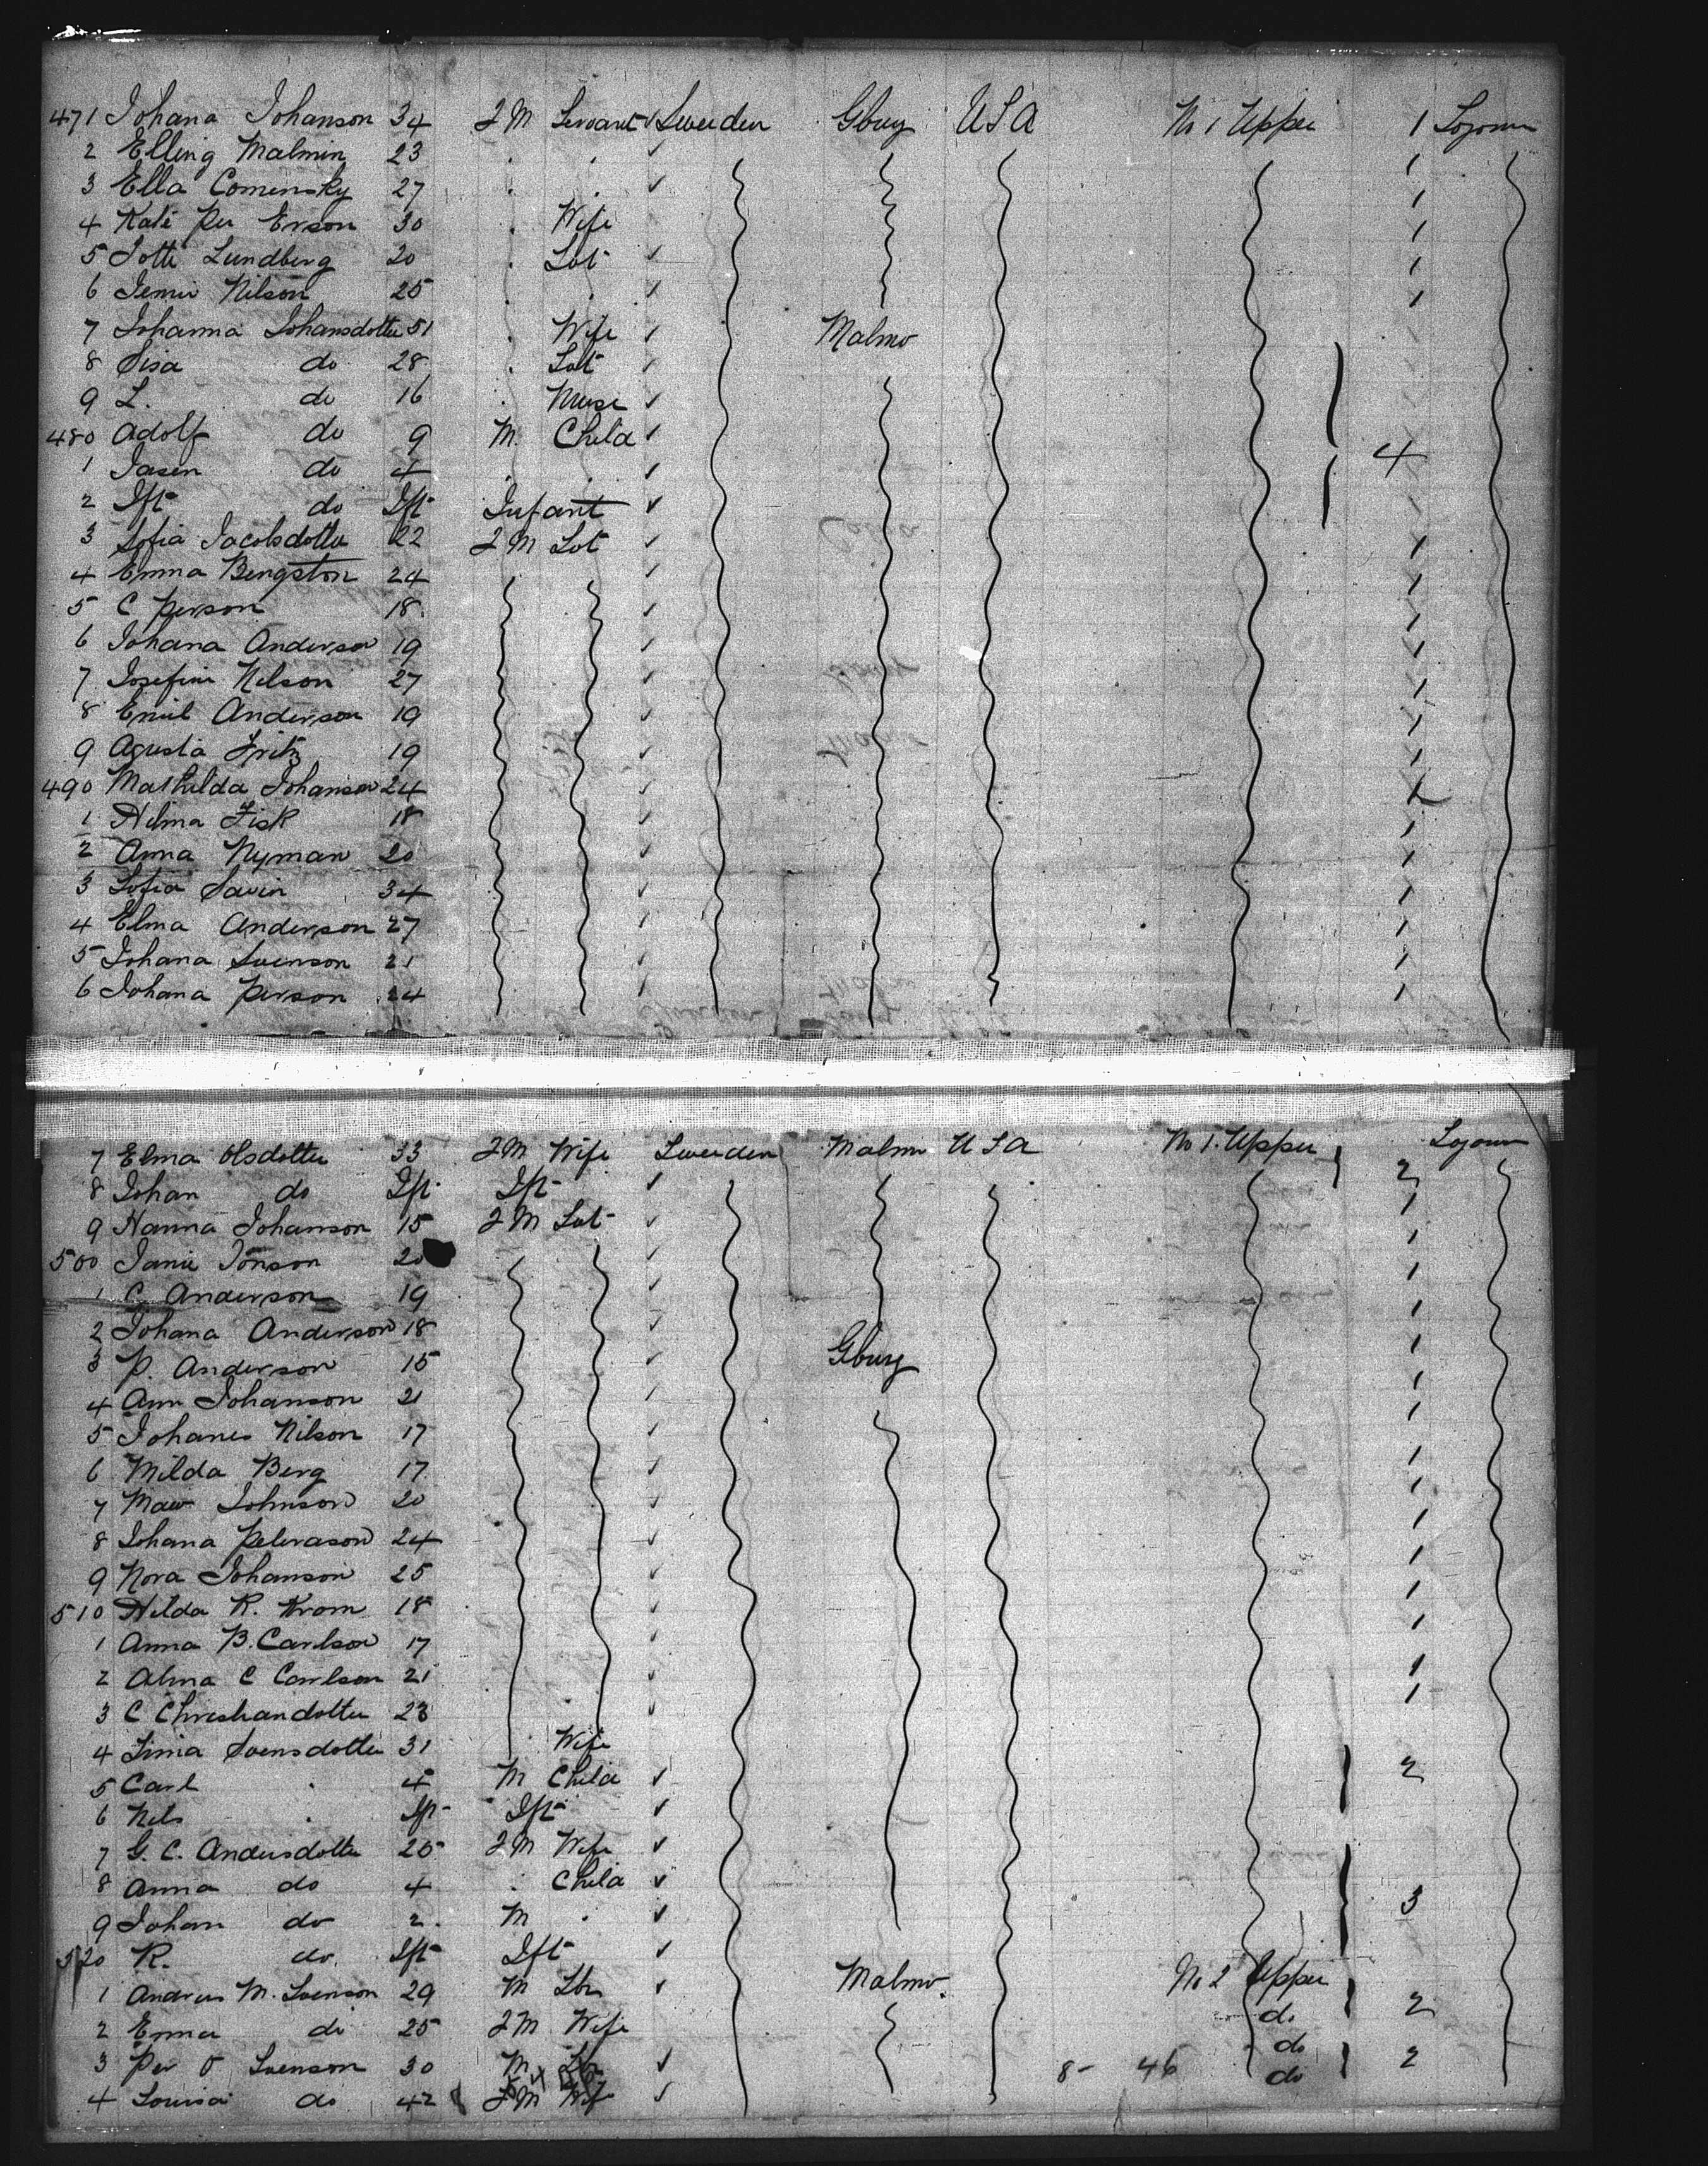 471 Johana Johanson 34 FM Servant Sweeden Gburg USA No 1 Upper 1 Sojourn
2 Elling Malmin 23 1
3 Ella Comensky 27 1
4 Kate Per Erson 30 Wife 1
5 Lotte Lundberg 20 1
6 Jenni Nilson 25 1
7 Johanna Johansdotter 51 Wife Malmo
8 Sisa do 28
9 L. do 16
480 Adolf do 9 M. Child 4
1 do 4
2 Ift do Ift Infant
3 Sofia Jacobsdotter 22 FM 1
4 Emma Bengston 24 1
5 C Person 18 1
6 Johana Anderson 19 1
7 Josefine Nilson 27 1
8 Emil Anderson 19 1
9 Agusta Fritz 19 1
490 Mathilda Johanson 24 1
1 Hilma Fisk 18 1
2 Anna Nyman 20 1
3 Sofia 34 1
4 Elma Anderson 27 1
5 Johana Svenson 21 1
6 Johana Person 24 1
7 Elma Olsdotter 33 FM Wife Sweeden Malmo USA No 1. Upper 2 Sojourn
8 Johan do Ift Ift
9 Hanna Johanson 15 FM 1
500 Janie Jonson 20 1
1 C Anderson 19 1
2 Johana Anderson 18 1
3 P. Anderson 15 Gburg 1
4 Ann Johanson 21 1
5 Johanes Nilson 17 1
6 Milda Berg 17 1
7 Johnson 20 1
8 Johana Peterason 24 1
9 Nora Johanson 25 1
510 Hilda K. Krom 18 1
1 Anna B. Carlson 17 1
2 Alma C Carlson 21 1
3 C Christiandotter 23 1
4 Svensdotter 31 Wife
5 Carl 4 M Child 2
6 Nels Ift Ift
7 G. C. Andersdotter 25 FM Wife
8 Anna do 4 Child
9 Johan do 2 M 3
520 K. do Ift Ift
1 Andrew M. Svenson 29 M Lbr Malmo. No 2 Upper
2 Emma do 25 FM Wife do 2
3 Per O Svenson 30 M Lbr 8- 46 do 2
4 Louisa do 42 FM Wife do